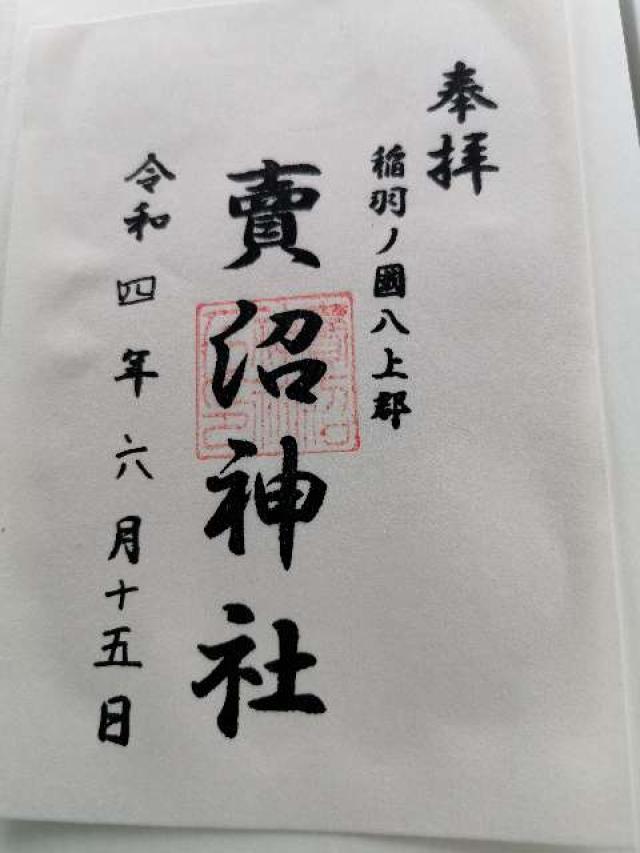 奉拝
稲羽ノ國八上郡
賣沼神社
令和四年六月十五日